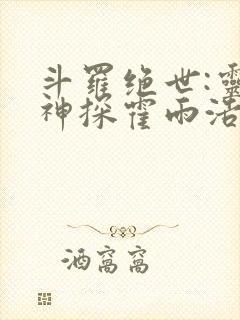 斗羅绝世:靈
神探霍雨浩
酒窩窩